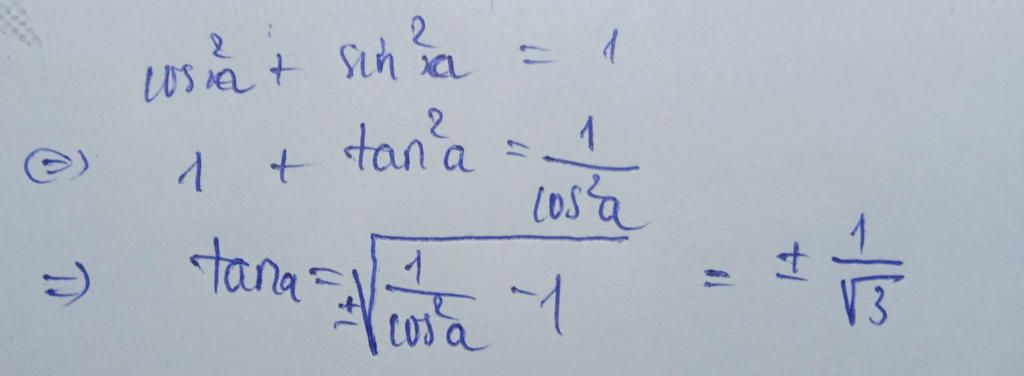 cos²a + sin²a = 1
⇔ 1 + tan²a = 1/cos²a
⇒ tan a = ±√(1/cos²a - 1) = ± 1/√3